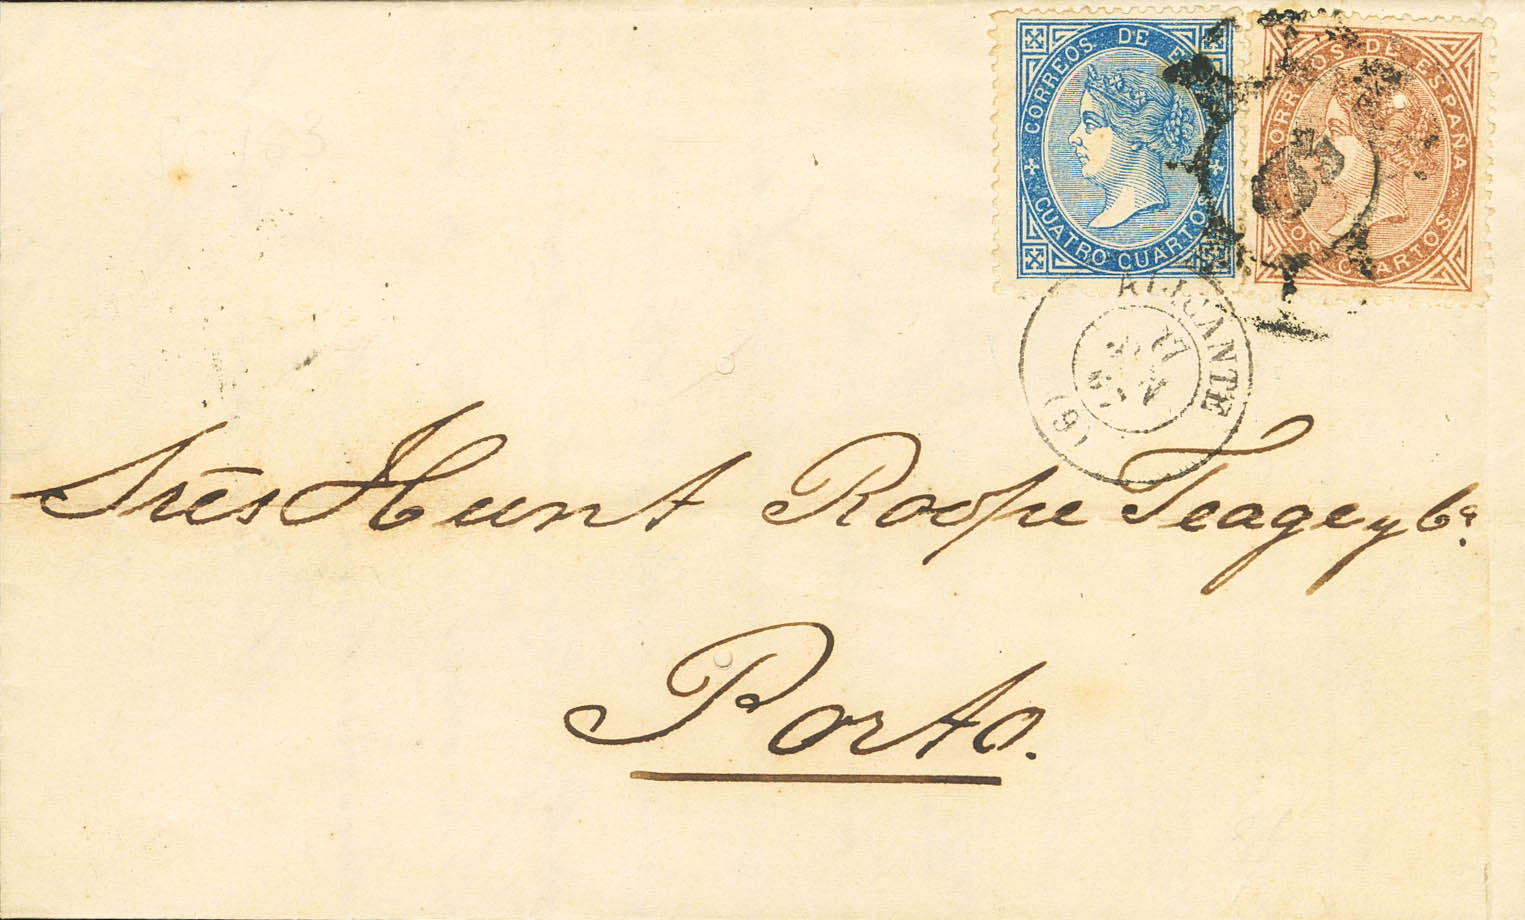 CORREOS DE E
CUATRO CUARTOS
CORREOS DE ESPAÑA
DOS CUARTOS
ALICANTE
17
(6)
Srēs Hunt Roope Teage y Cª.
Porto.